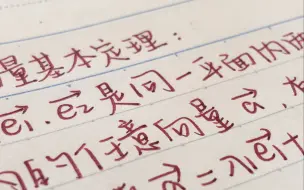 量基本定理：
e₁、e₂是同一平面内两
的任意向量a，有
a=λ₁e₁+